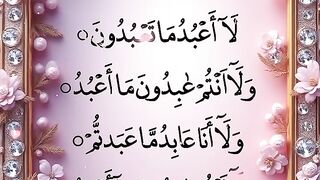 لَآ أَعْبُدُ مَا تَعْبُدُونَ ○
وَلَآ أَنْتُمْ عٰبِدُونَ مَآ أَعْبُدُ ○
وَلَآ أَنَا عَابِدٌ مَّا عَبَدتُّمْ ○